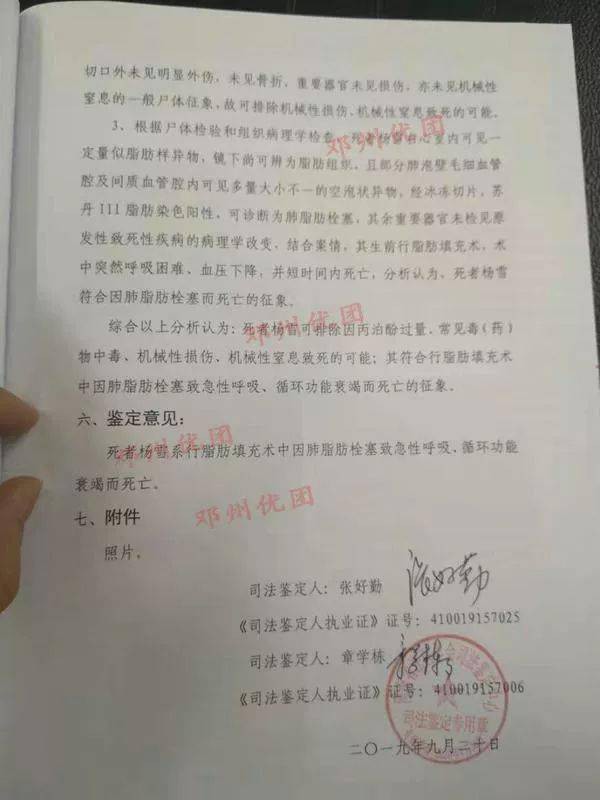 切口外未见明显外伤，未见骨折，重要器官未见损伤，亦未见机械性
窒息的一般尸体征象，故可排除机械性损伤、机械性窒息致死的可能。
3、根据尸体检验和组织病理学检查，死者杨雪右心室内可见一
定量似脂肪样异物，镜下尚可辨为脂肪组织，且部分肺泡壁毛细血管
腔及间质血管腔内可见多量大小不一的空泡状异物，经冰冻切片，苏
丹 III 脂肪染色阳性，可诊断为肺脂肪栓塞，其余重要器官未检见原
发性致死性疾病的病理学改变，结合案情，其生前行脂肪填充术，术
中突然呼吸困难、血压下降，并短时间内死亡，分析认为，死者杨雪
符合因肺脂肪栓塞而死亡的征象。
综合以上分析认为：死者杨雪可排除因丙泊酚过量、常见毒（药）
物中毒、机械性损伤、机械性窒息致死的可能；其符合行脂肪填充术
中因肺脂肪栓塞致急性呼吸、循环功能衰竭而死亡的征象。
六、鉴定意见：
死者杨雪系行脂肪填充术中因肺脂肪栓塞致急性呼吸、循环功能
衰竭而死亡。
七、附件
照片。
司法鉴定人：张好勤
《司法鉴定人执业证》证号：410019157025
司法鉴定人：章学栋
《司法鉴定人执业证》证号：410019157006
司法鉴定专用章
二〇一九年九月二十日
邓州优团
邓州优团
邓州优团
邓州优团